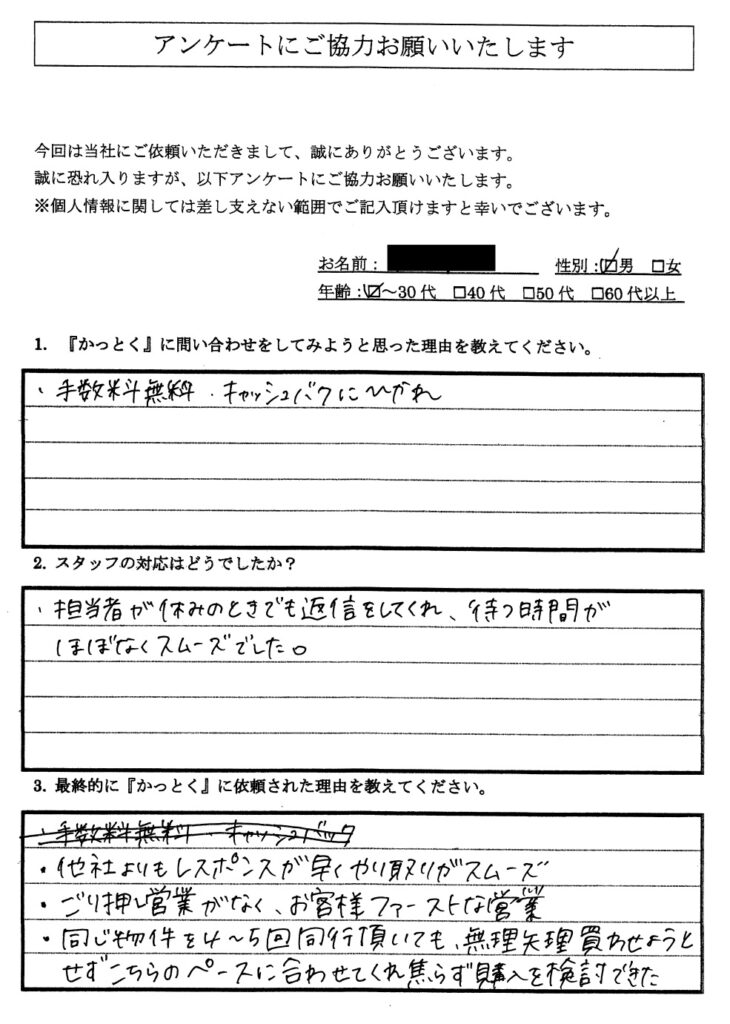 アンケートにご協力お願いいたします
今回は当社にご依頼いただきまして、誠にありがとうございます。
誠に恐れ入りますが、以下アンケートにご協力お願いいたします。
※個人情報に関しては差し支えない範囲でご記入頂けますと幸いでございます。
お名前： 性別：☑男 □女
年齢：☑～30代 □40代 □50代 □60代以上
1. 『かっとく』に問い合わせをしてみようと思った理由を教えてください。
・手数料無料・キャッシュバクにひかれ
2. スタッフの対応はどうでしたか？
・担当者が休みのときでも返信をしてくれ、待つ時間が
ほぼなくスムーズでした。
3. 最終的に『かっとく』に依頼された理由を教えてください。
・手数料無料・キャッシュバック
・他社よりもレスポンスが早くやり取りがスムーズ
・ごり押し営業がなく、お客様ファーストな営業
・同じ物件を4～5回同行頂いても、無理矢理買わせようと
せずこちらのペースに合わせてくれ焦らず購入を検討できた